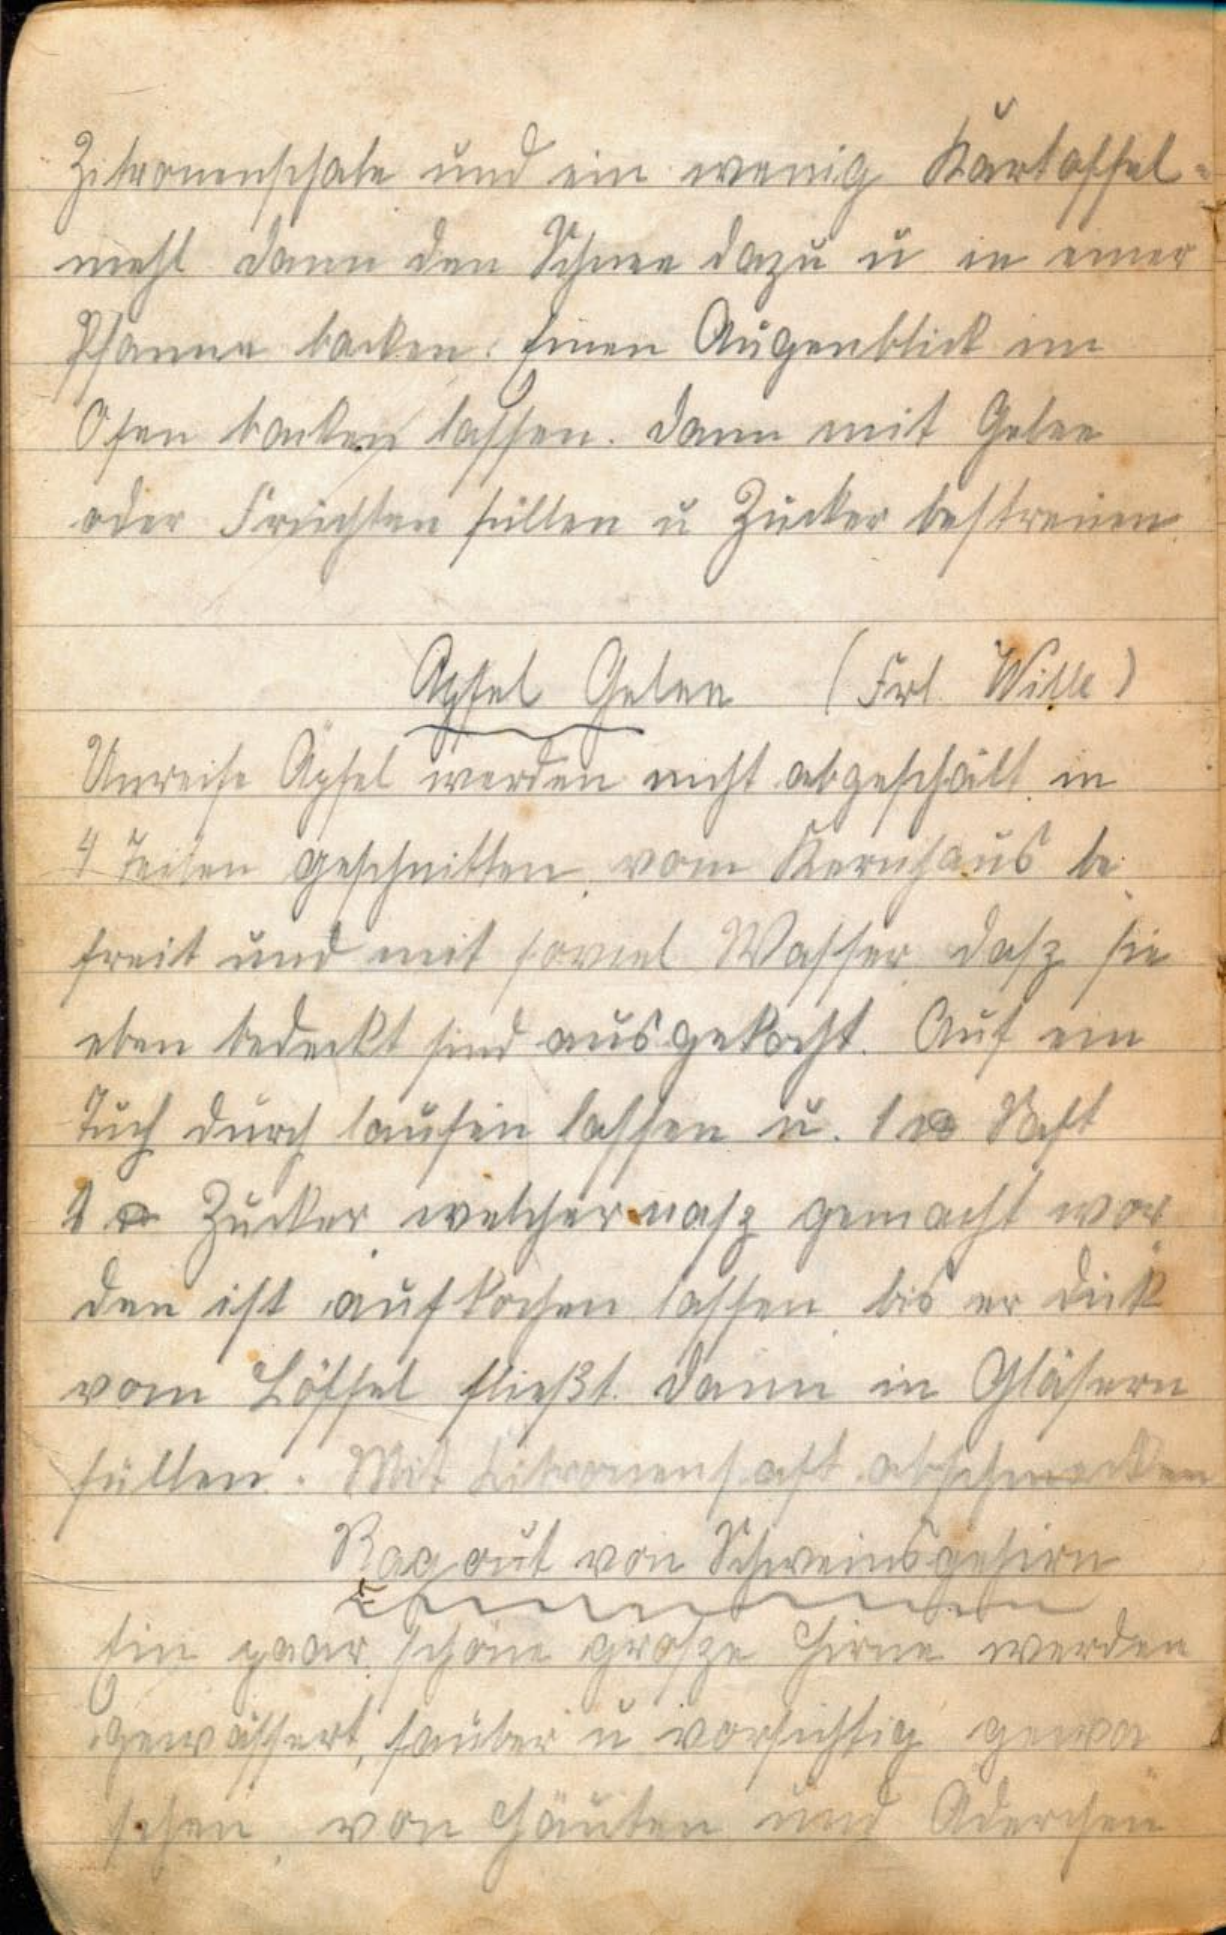 Zitronenschale und ein wenig Kartoffel-
mehl dann den Schnee dazu u in einer
Pfanne backen. Einen Augenblick im
Ofen backen lassen. Dann mit Gelee
oder Früchten füllen u Zucker bestreuen.
Apfel Gelee (Frl. Wille)
Unreife Äpfel werden nicht abgeschält in
4 Teilen geschnitten, vom Kernhaus be
freit und mit soviel Wasser dasz sie
eben bedeckt sind ausgekocht. Auf ein
Tuch durch laufen lassen u. 1 ℔ Saft
1 ℔ Zucker welcher nasz gemacht wor
den ist aufkochen lassen bis er dick
vom Löffel fließt. Dann in Gläsern
füllen. Mit Zitronensaft abschmecken
Ragout von Schweinsgehirn
Ein paar schöne grosze Hirne werden
gewässert, sauber u vorsichtig gewa
schen, von Häuten und Äderchen